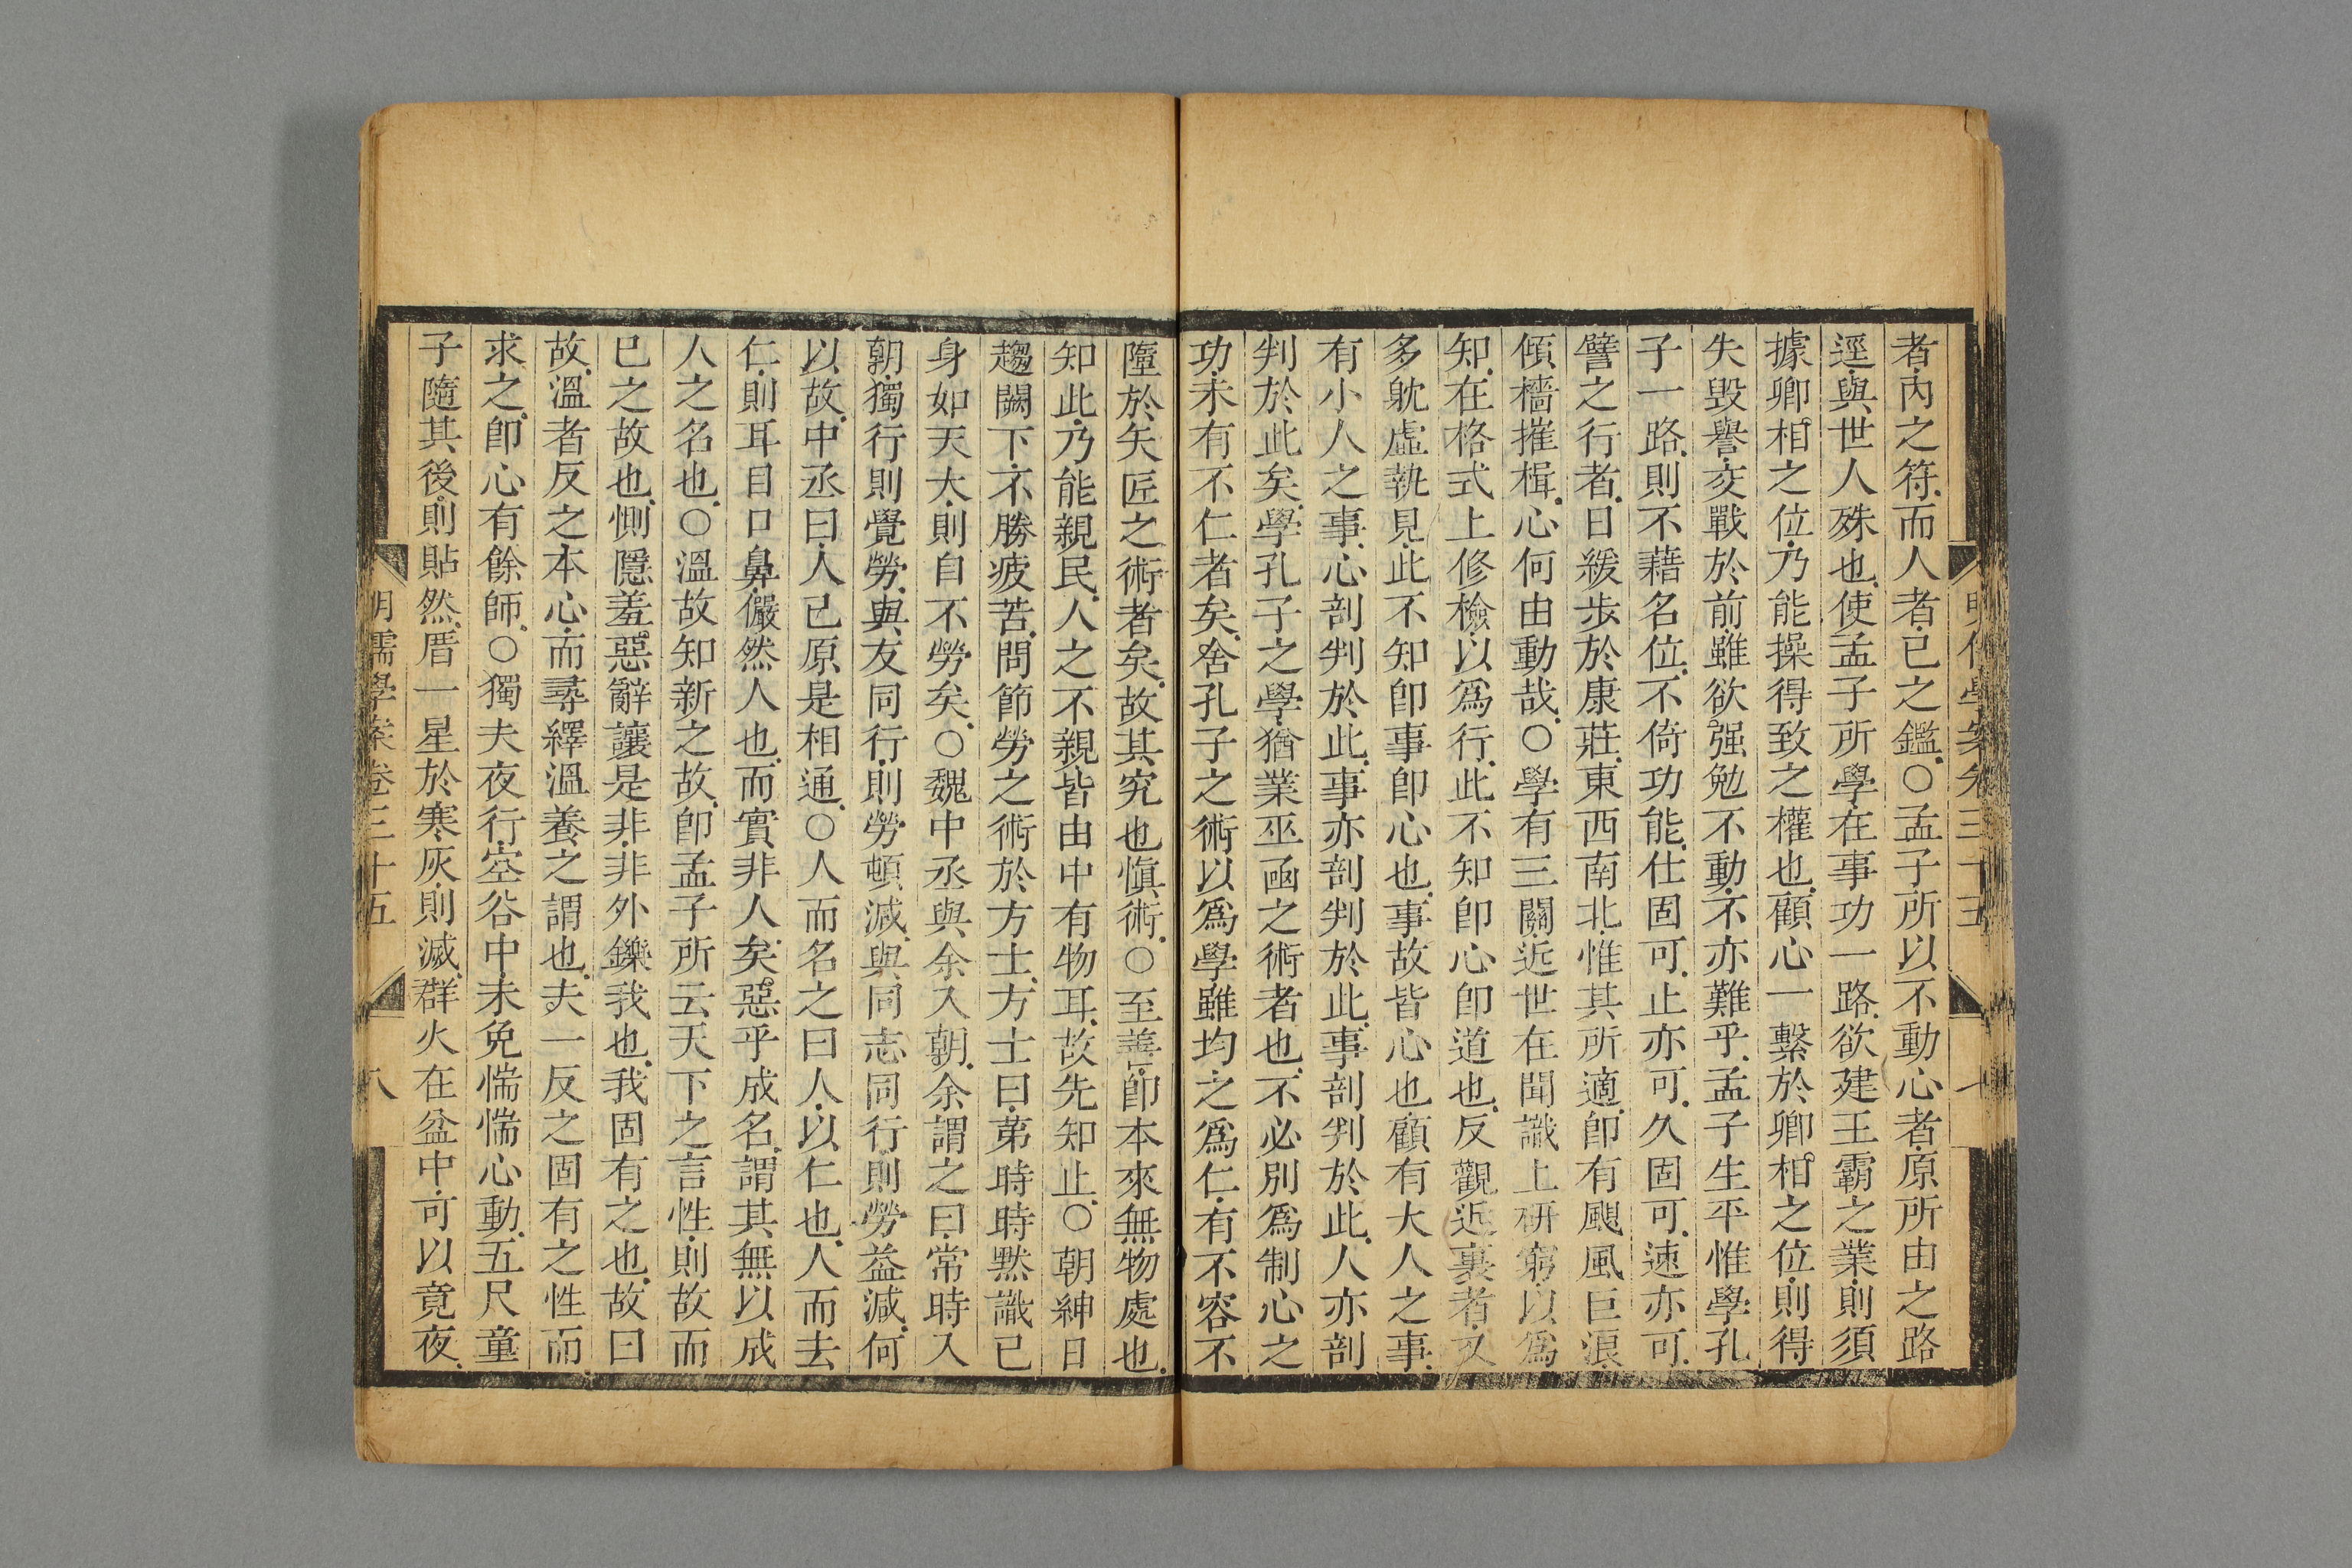 者內之符而人者已之鑑○孟子所以不動心者原所由之路
逕與世人殊也使孟子所學在事功一路欲建王霸之業則須
據卿相之位乃能操得致之權也顧心一繫於卿相之位則得
失毀譽交戰於前雖欲强勉不動不亦難乎孟子生平惟學孔
子一路則不藉名位不倚功能仕固可止亦可久固可速亦可
譬之行者日緩步於康莊東西南北惟其所適卽有颶風巨浪
傾檣摧楫心何由動哉○學有三關近世在聞識上硏窮以爲
知在格式上修檢以爲行此不知卽心卽道也反觀近裏者又
多躭虛執見此不知卽事卽心也事故皆心也顧有大人之事
有小人之事心剖判於此事亦剖判於此事剖判於此人亦剖
判於此矣學孔子之學猶業巫凾之術者也不必別爲制心之
功未有不仁者矣舍孔子之術以爲學雖均之爲仁有不容不
墮於矢匠之術者矣故其究也愼術○至善卽本來無物處也
知此乃能親民人之不親皆由中有物耳故先知止○朝紳日
趨闕下不勝疲苦問節勞之術於方士方士曰第時時默識已
身如天大則自不勞矣○魏中丞與余入朝余謂之曰常時入
朝獨行則覺勞與友同行則勞頓減與同志同行則勞益減何
以故中丞曰人己原是相通○人而名之曰人以仁也人而去
仁則耳目口鼻儼然人也而實非人矣惡乎成名謂其無以成
人之名也○溫故知新之故卽孟子所云天下之言性則故而
已之故也惻隱羞惡辭讓是非非外鑠我也我固有之也故曰
故溫者反之本心而尋繹溫養之謂也夫一反之固有之性而
求之卽心有餘師○獨夫夜行空谷中未免惴惴心動五尺童
子隨其後則貼然厝一星於寒灰則滅群火在盆中可以竟夜
明儒學案卷三十五
八